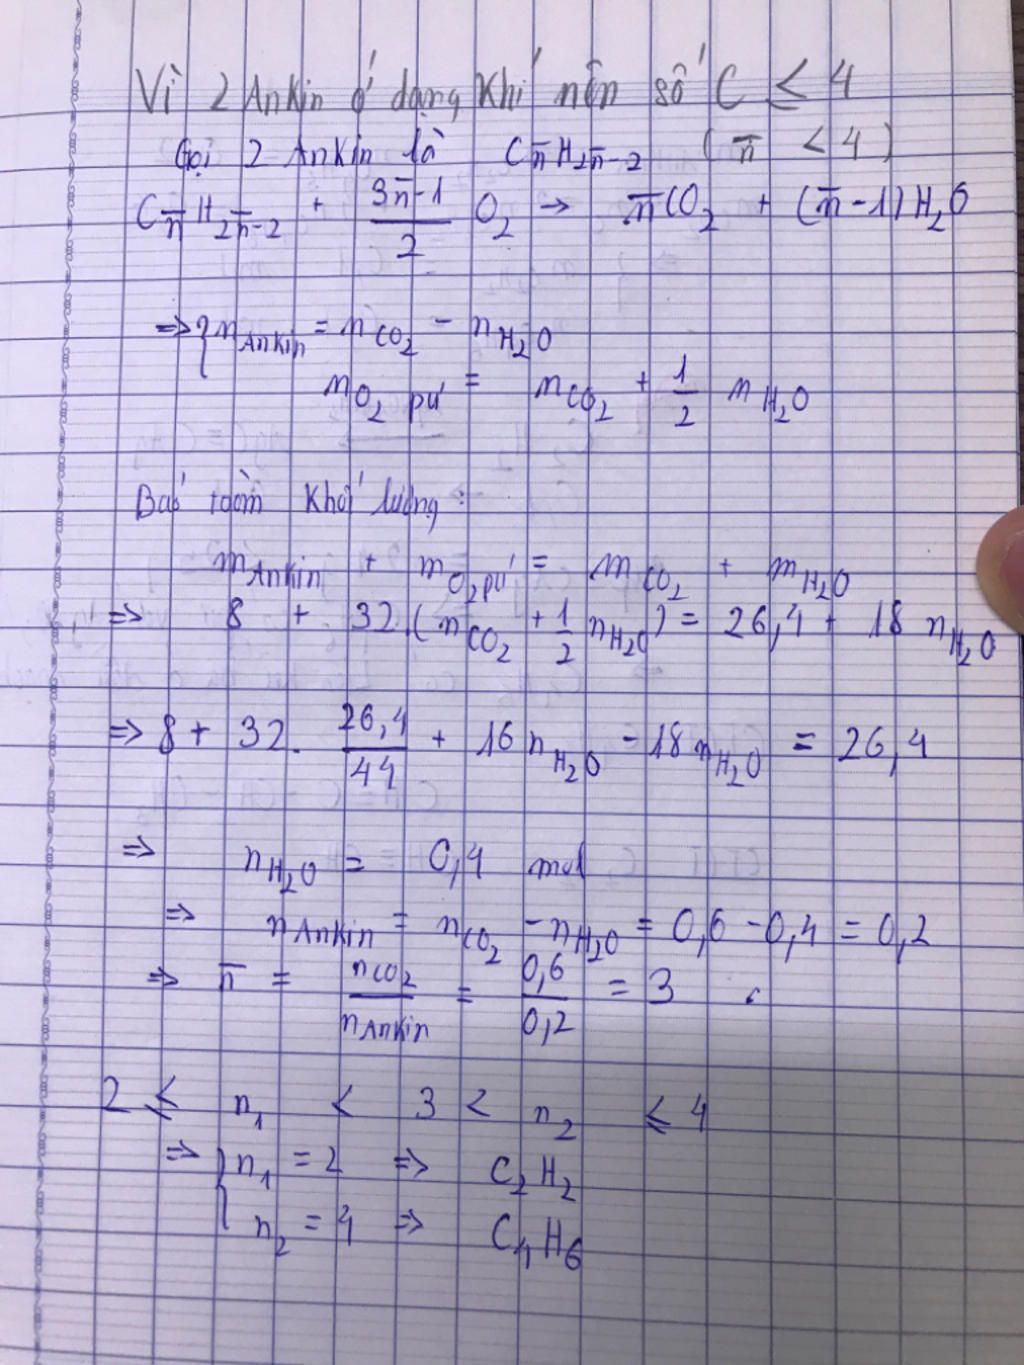 Vì 2 Ankin ở dạng khí nên số C ≤ 4
Gọi 2 Ankin là Cn̄H2n̄-2 ( n̄ < 4 )
Cn̄H2n̄-2 + (3n̄-1)/2 O2 → n̄CO2 + (n̄-1)H2O
=> { nAnkin = nCO2 - nH2O
nO2 pứ = nCO2 + 1/2 nH2O
Baỏ toàn khối lượng :
mAnkin + mO2pứ = mCO2 + mH2O
=> 8 + 32.(nCO2 + 1/2 nH2O) = 26,4 + 18 nH2O
=> 8 + 32. 26,4/44 + 16 nH2O - 18 nH2O = 26,4
=> nH2O = 0,4 mol
=> nAnkin = nCO2 - nH2O = 0,6 - 0,4 = 0,2
=> n̄ = nCO2/nAnkin = 0,6/0,2 = 3
2 ≤ n1 < 3 < n2 ≤ 4
=> { n1 = 2 => C2H2
n2 = 4 => C4H6